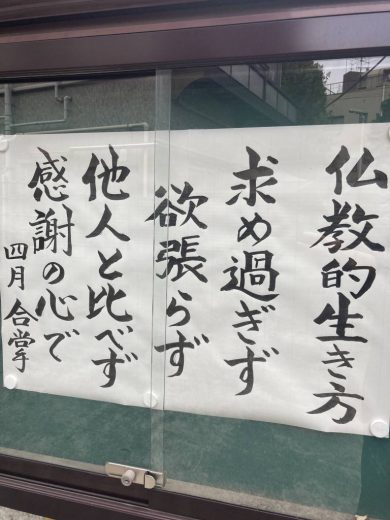 仏教的生き方
求め過ぎず
欲張らず
他人と比べず
感謝の心で
四月 合掌